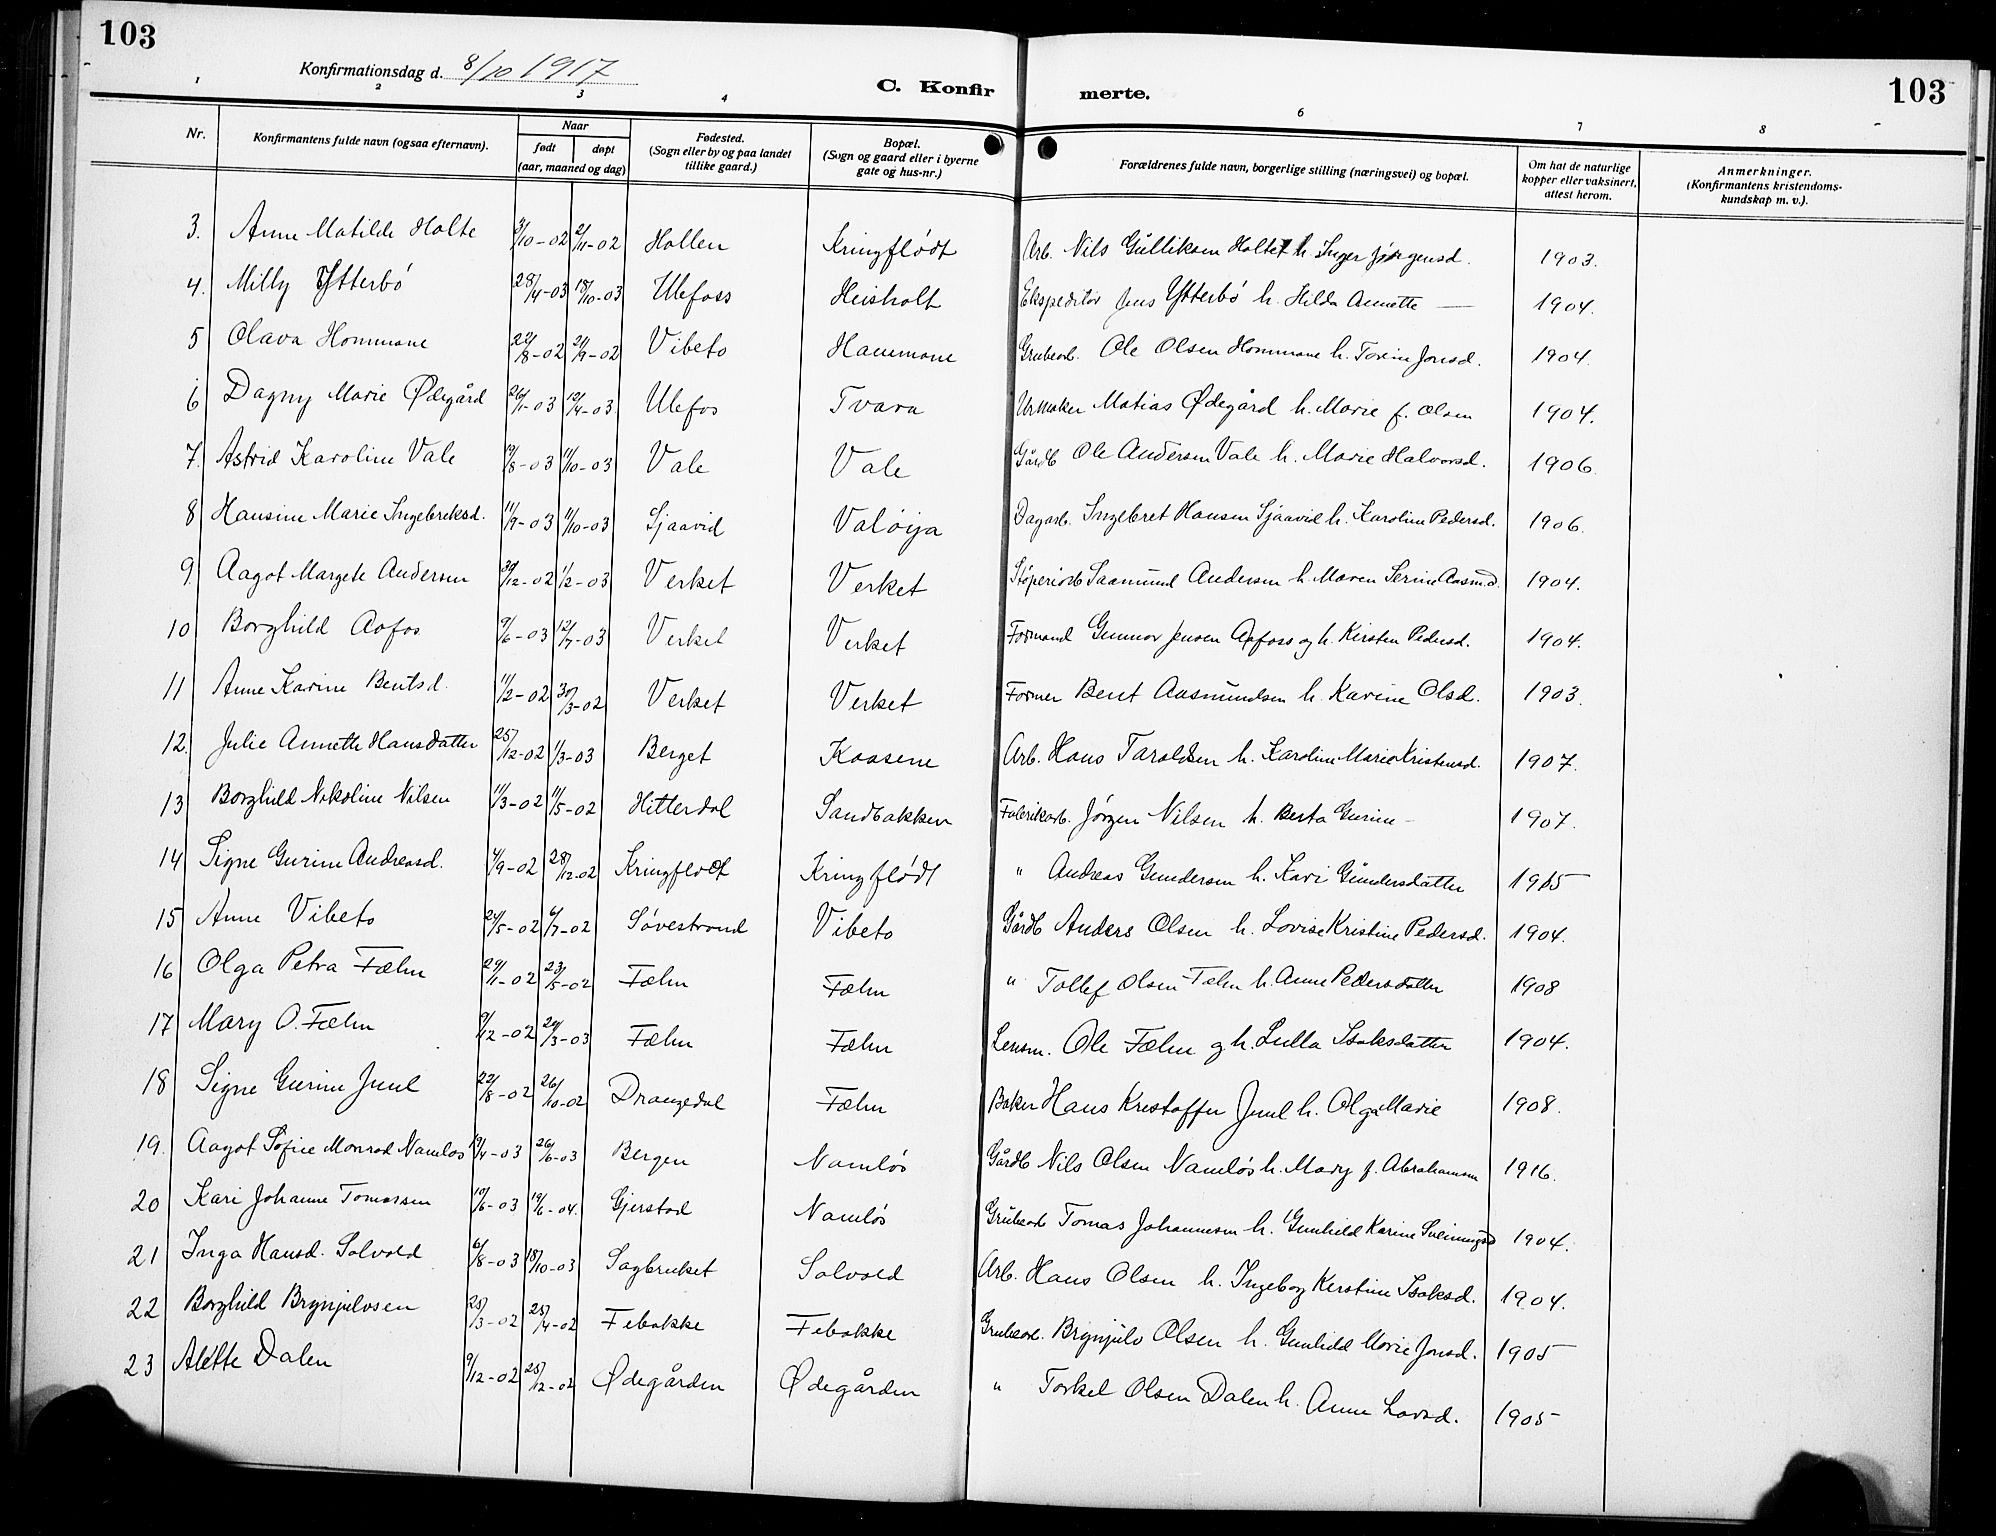 103
Konfirmationsdag d. 8/10 1917
C. Konfirmerte.
103
1 2 3 4 6 7 8
Nr. Konfirmantens fulde navn (ogsaa efternavn). Naar født døpt (aar, maaned og dag) Fødested. (Sogn eller by og paa landet tillike gaard.) Bopæl. (Sogn og gaard eller i byerne gate og hus-nr.) Forældrenes fulde navn, borgerlige stilling (næringsvei) og bopæl. Om hat de naturlige kopper eller vaksinert, attest herom. Anmerkninger. (Konfirmantens kristendoms-kundskap m. v.).
3. Anne Matilde Holte 3/10-02 2/11-02 Hollen Kringflødt Arb. Nils Gulliksen Holte h. Inger Jørgensd. 1903.
4. Milly Ytterbö 28/4-03 18/10-03 Ulefoss Heisholt Ekspeditör Jens Ytterbö h. Hilda Annette — 1904.
5 Olava Hommane 22/8-02 21/9-02 Vibeto Hammane Grubearb. Ole Olsen Hommane h. Torine Jonsd. 1904.
6 Dagny Marie Ødegård 26/1-03 12/4-03 Ulefos Tvara Urmaker Matias Ødegård h. Marie f. Olsen 1904.
7. Astrid Karoline Vale 19/8-03 11/10-03 Vale Vale Gårdb Ole Andersen Vale h. Marie Halvorsd. 1906.
8 Hansine Marie Ingebreksd. 11/9-03 11/10-03 Sjaavid Valöija Dagarb. Ingebret Hansen Sjaavid h. Karoline Pedersd. 1906.
9 Aagot Margete Andersen 30/12-02 1/2-03 Verket Verket Støperiarb Saamund Andersen h. Maren Serine Aasm.d. 1904.
10 Borghild Aafos 9/6-03 12/7-03 Verket Verket Formand Gunnar Jensen Aafoss og h. Kirsten Pedersd. 1904.
11 Anne Karine Bentsd. 11/2-02 30/3-02 Verket Verket Former Bent Aasmundsen h. Karine Olsd. 1903.
12. Julie Annette Hansdatter 25/12-02 1/3-03 Berget Kaasene Arb. Hans Taraldsen h. Karoline Marie Kristensd. 1907.
13 Borghild Nikoline Nilsen 11/3-02 11/5-02 Hitterdal Sandbakken Fabrikarb. Jørgen Nilsen h. Berta Gurine - 1907.
14 Signe Gurine Andreasd. 4/9-02 28/12-02 Kringflødt Kringflødt " Andreas Gundersen h. Kari Gundersdatter 1915
15 Anne Vibeto 24/5-02 6/7-02 Søvestrand Vibeto Gårdb Anders Olsen h. Lovise Kristine Pedersd. 1904.
16 Olga Petra Fæhn 29/1-02 23/5-02 Fæhn Fæhn " Tollef Olsen Fæhn h. Anne Pedersdatter 1908
17 Mary O. Fæhn 9/12-02 29/3-03 Fæhn Fæhn Lensm. Ole Fæhn og h. Lulla Isaksdatter 1904.
18 Signe Gurine Juul 22/8-02 26/10-02 Drangedal Fæhn Baker Hans Kristoffer Juul h. Olga Marie 1908.
19. Aagot Sofie Monrad Namløs 19/4-03 26/6-03 Bergen Namløs Gårdb Nils Olsen Namløs h. Mary f. Abrahamsen 1916.
20 Kari Johanne Tomassen 10/6-03 19/6-04. Gjerstad Namløs Grubearb Tomas Johannesen h. Gunhild Karine Sveinungsd 1904.
21 Inga Hansd. Solvold 6/8-03 18/10-03 Sagbruket Solvold Arb. Hans Olsen h. Ingeborg Kerstine Isaksd. 1904.
22 Borghild Brynjulvsen 25/3-02 25/4-02 Febakke Febakke Grubearb. Brynjulv Olsen h. Gunhild Marie Jonsd. 1905
23 Alette Dalen 9/12-02 25/12-02 Ødegården Ødegården " Torkel Olsen Dalen h. Anne Larsd. 1905